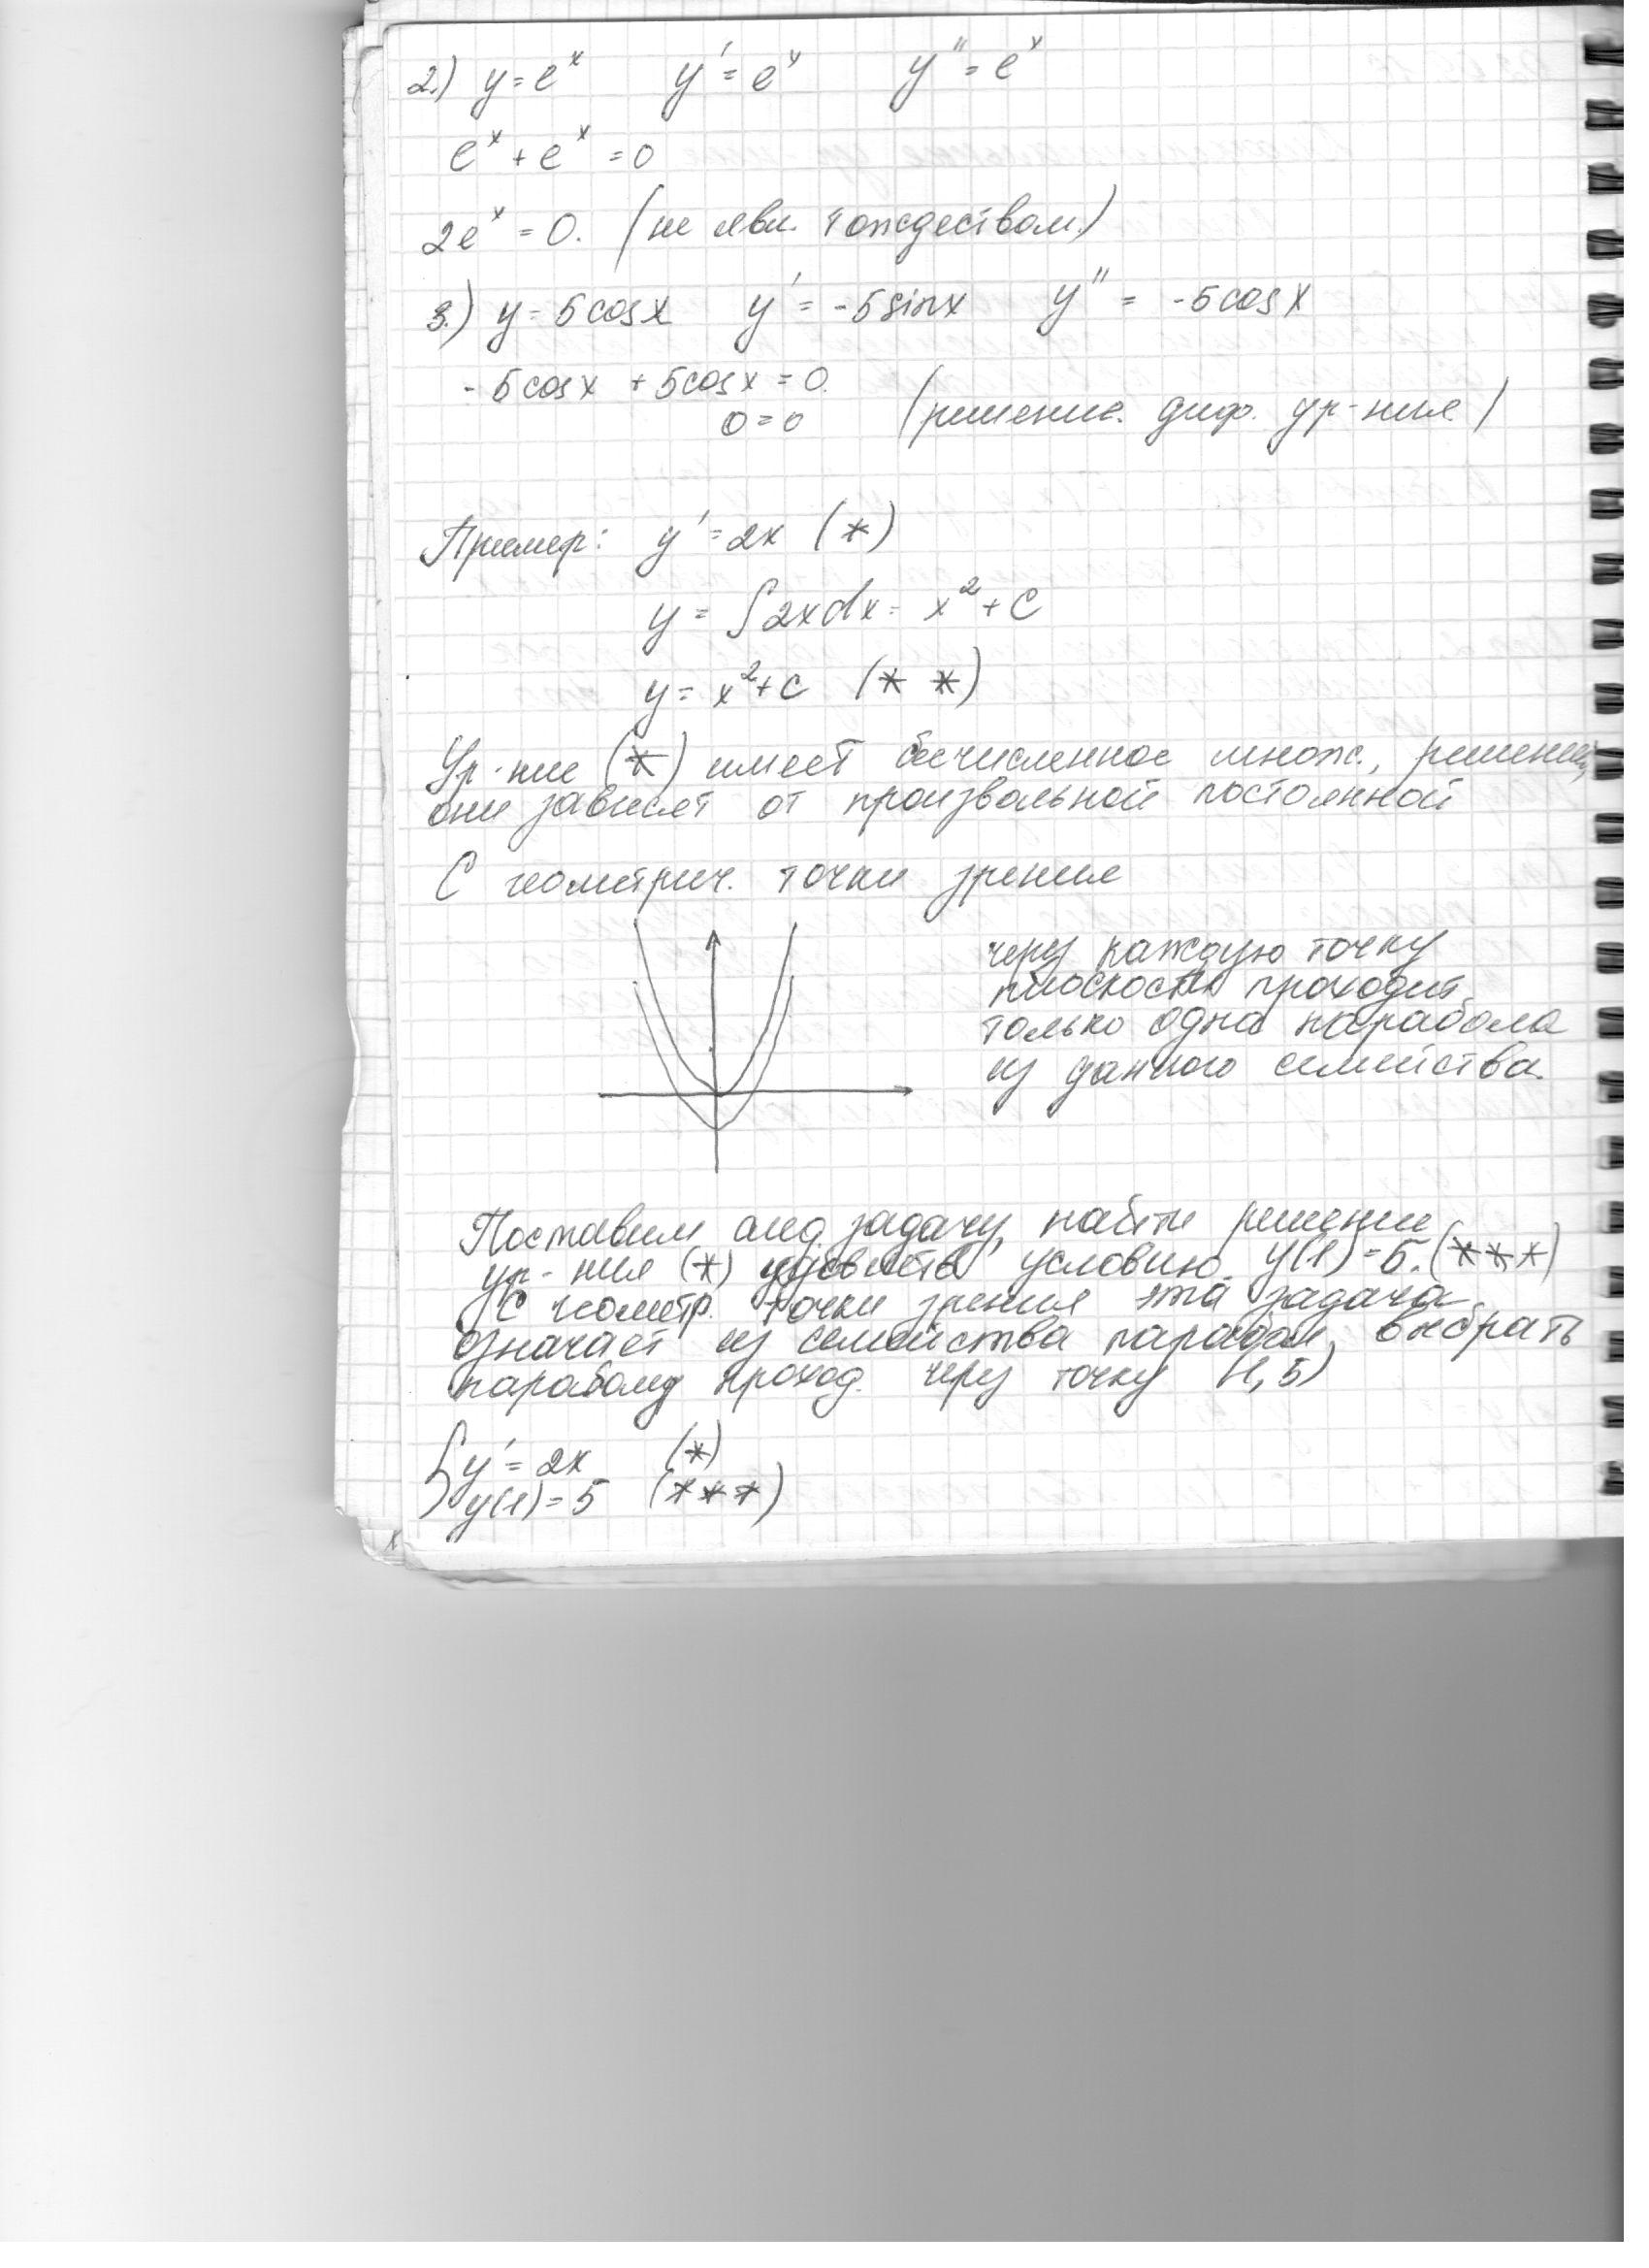 2.) y = eˣ y' = eˣ y'' = eˣ
eˣ + eˣ = 0
2eˣ = 0. (не явл. тождеством.)
3.) y = 5cosx y' = -5sinx y'' = -5cosx
-5cosx + 5cosx = 0.
0 = 0 (решение. диф. ур-ния.)
Пример: y' = 2x (*)
y = ∫2xdx = x² + C
y = x² + C (* *)
Ур-ние (*) имеет бесчисленное множ., решений,
они зависят от произвольной постоянной
С геометрич. точки зрения
через каждую точку
плоскости проходит
только одна парабола
из данного семейства.
Поставим след. задачу, найти решение
ур-ния (*) удовлетв. условию y(1) = 5. (***)
С геометр. точки зрения эта задача
означает из семейства парабол, выбрать
параболу проход. через точку (1, 5)
{ y' = 2x (*)
y(1) = 5 (***)